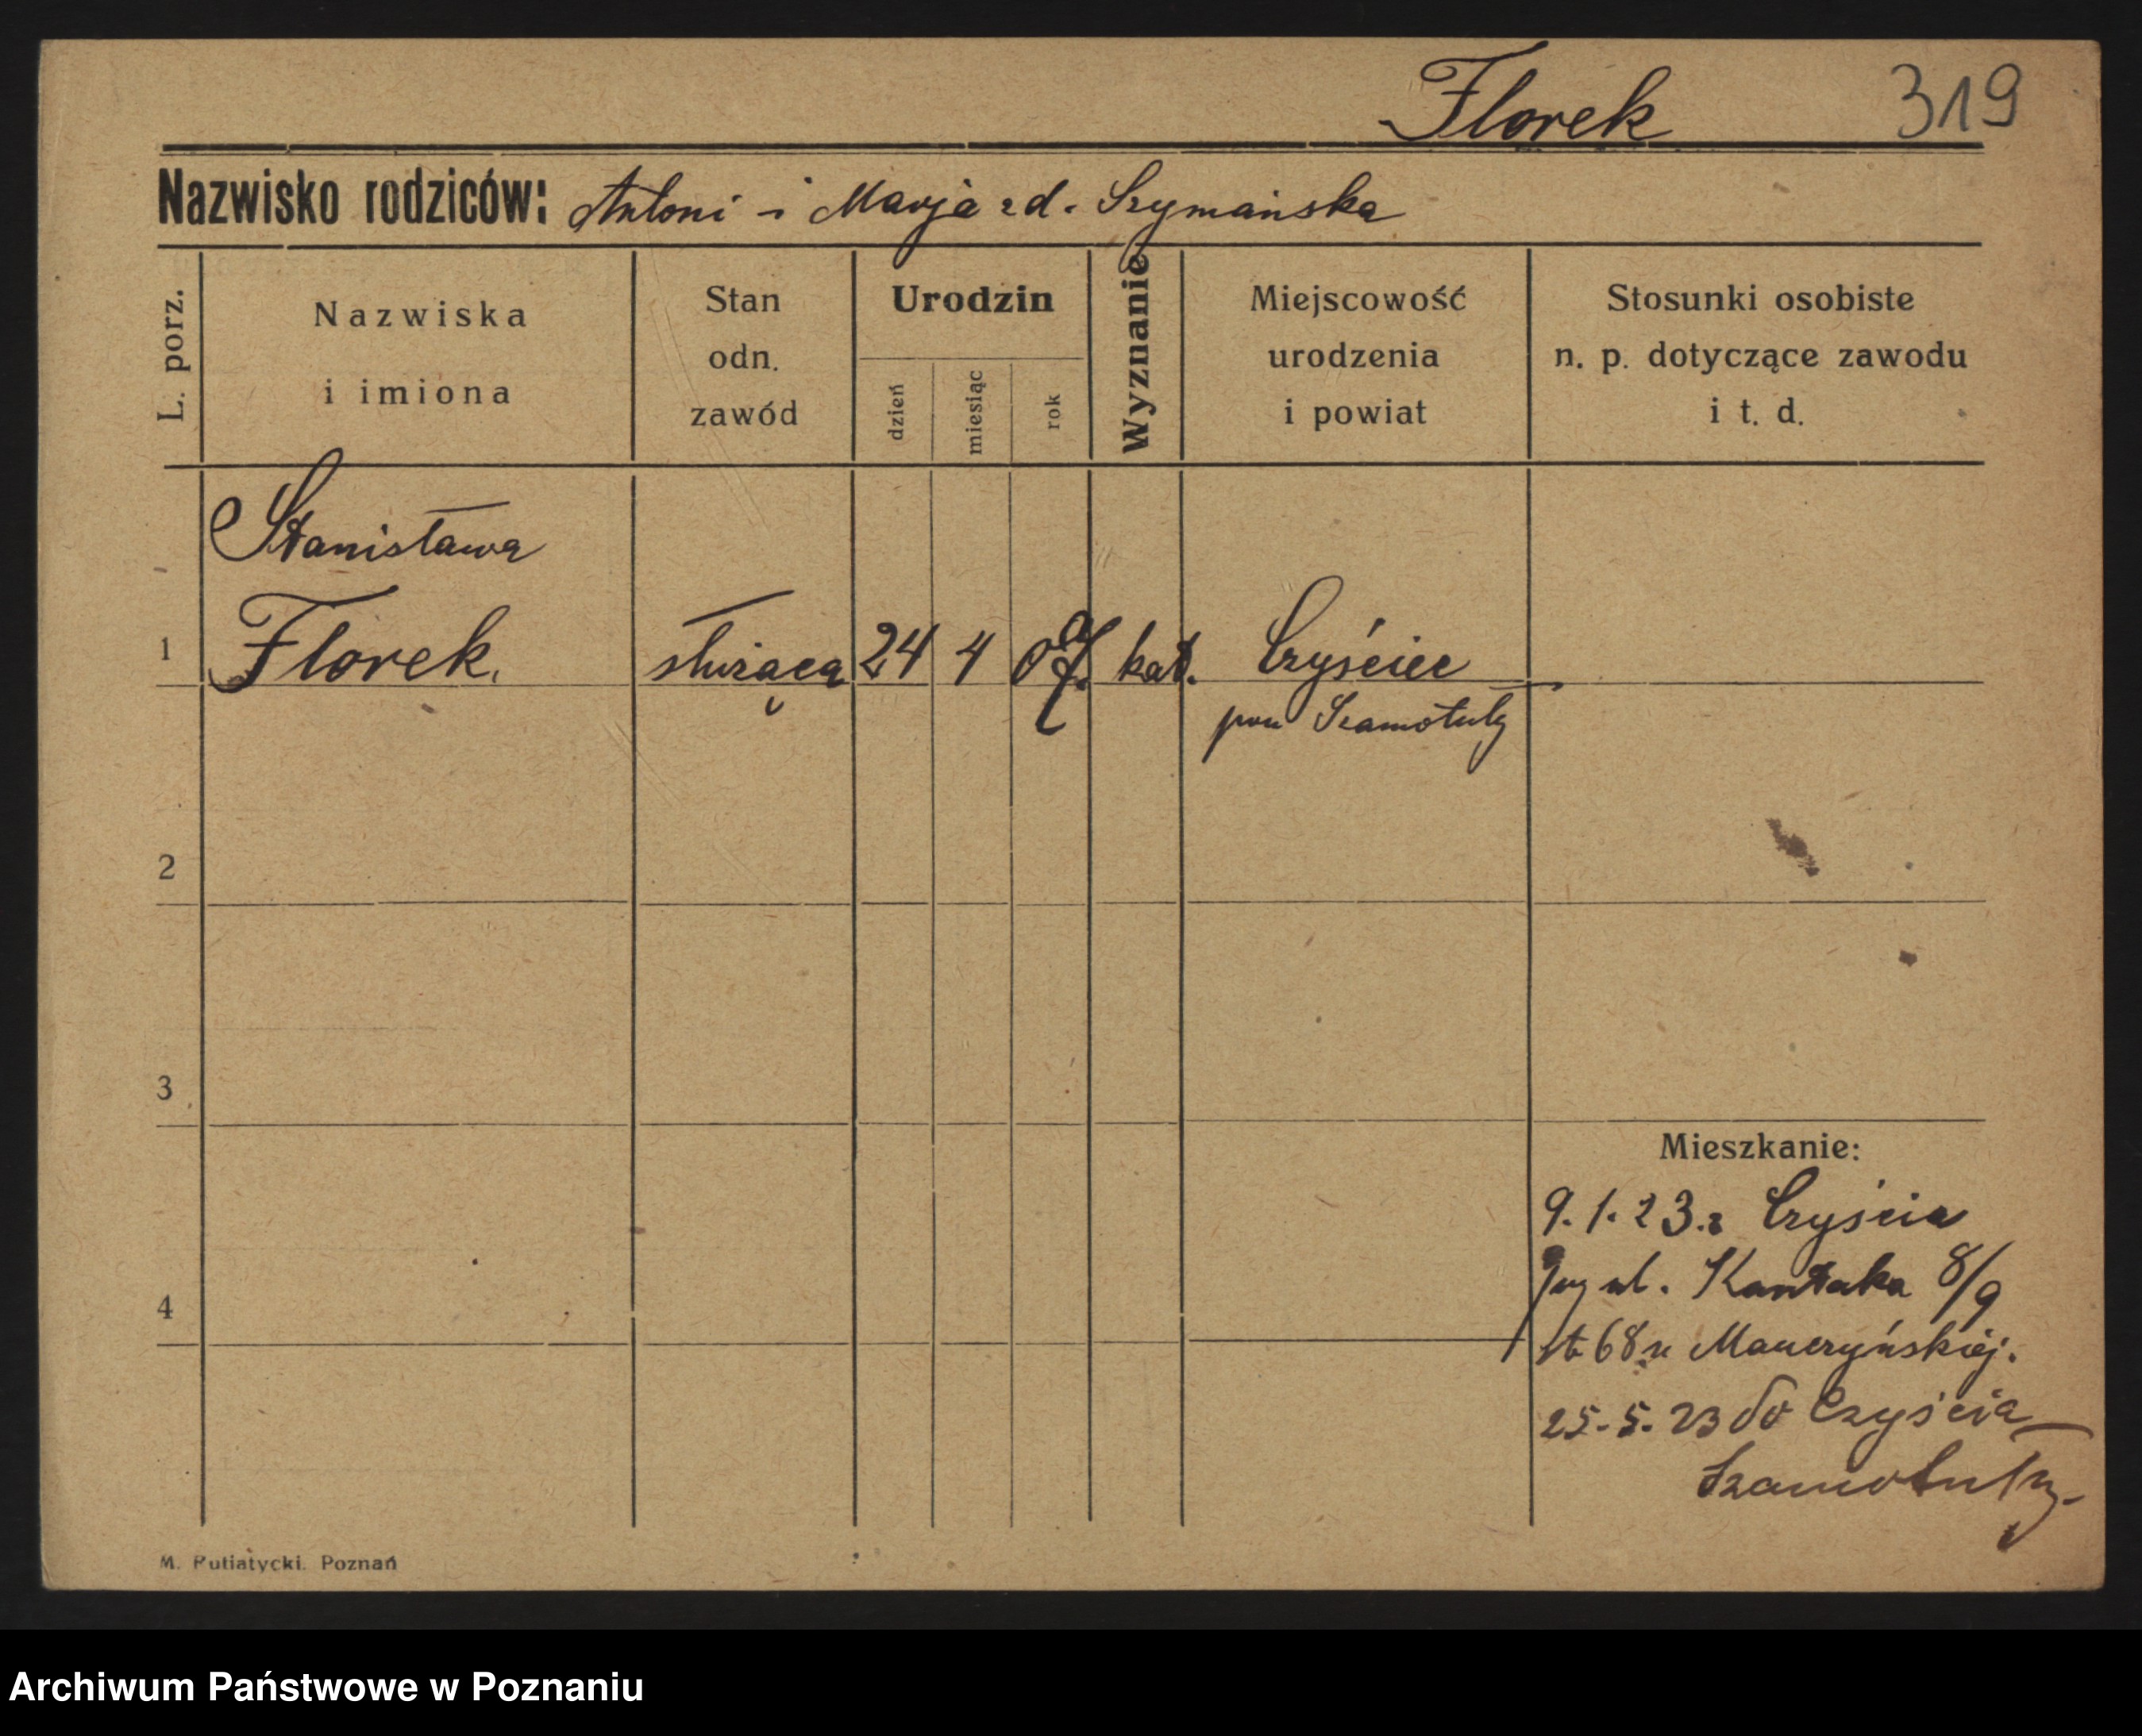 Florek 319
Nazwisko rodziców: Antoni i Marja zd. Szymańska
L. porz.
Nazwiska
i imiona
Stan
odn.
zawód
Urodzin
dzień
miesiąc
rok
Wyznanie
Miejscowość
urodzenia
i powiat
Stosunki osobiste
n. p. dotyczące zawodu
i t. d.
Stanisława
1 Florek. służąca 24 4 07. kat. Czyściec
pow Szamotuły
2
3
Mieszkanie:
9.1.23. z Czyścia
ul. Kantaka 8/9
4
68 u
25.5.23 do Czyścia
Szamotuły.
M. Putiatycki. Poznań
Archiwum Państwowe w Poznaniu